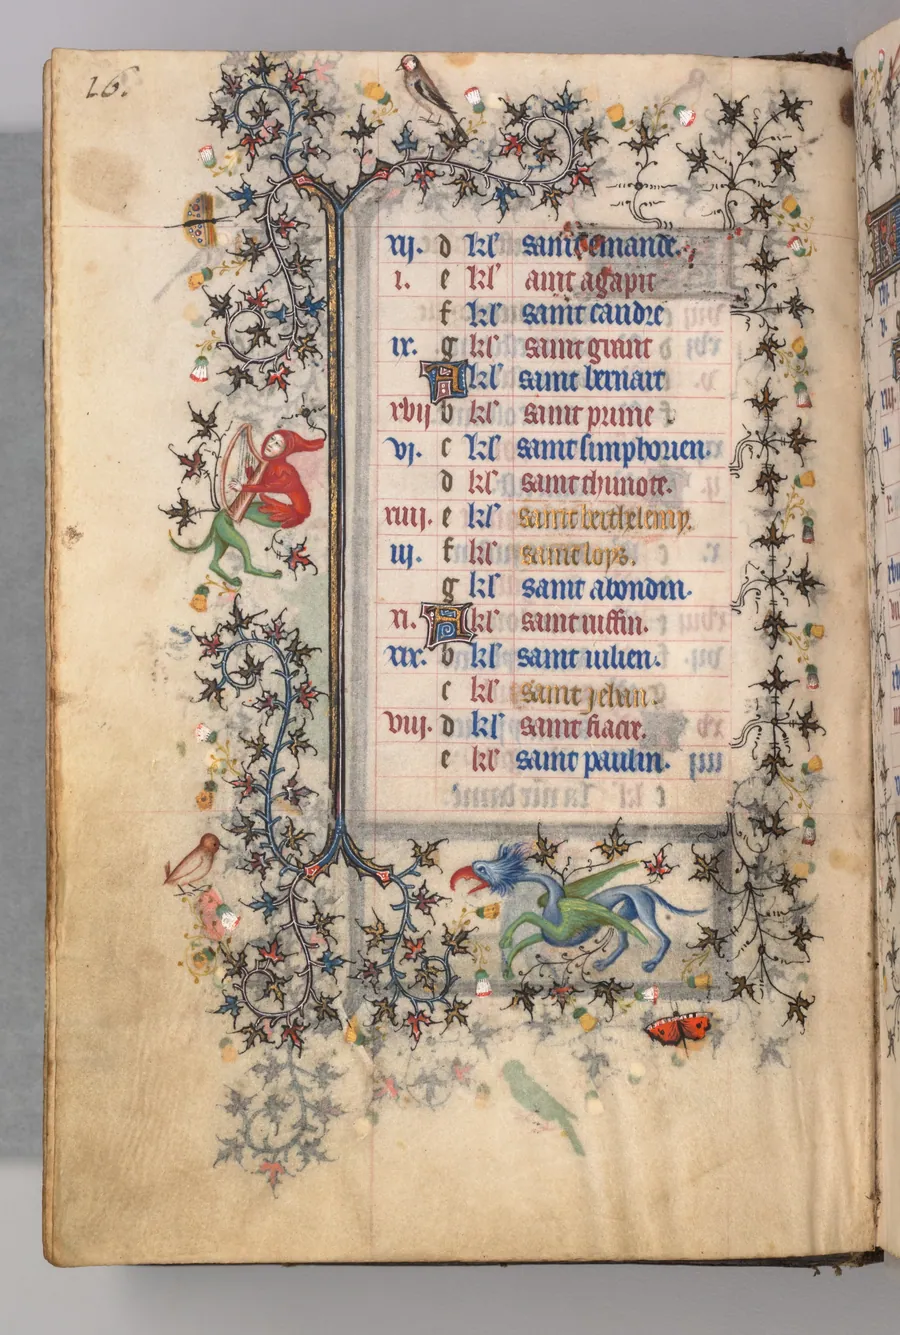 16.
xij. d kl' saint emande.
i. e kl' aint agapit
f kl' saint caudre
ix. g kl' saint girant
A kl' saint bernart
xvij b kl' saint prime
vj. c kl' saint simphorien.
d kl' saint thimote.
xiiij. e kl' saint berthelemy.
iij. f kl' saint loys.
g kl' saint abondin.
xi. A kl' saint ruffin.
xix. b kl' saint iulien.
c kl' saint jehan.
viij. d kl' saint fiacre.
e kl' saint paulin.